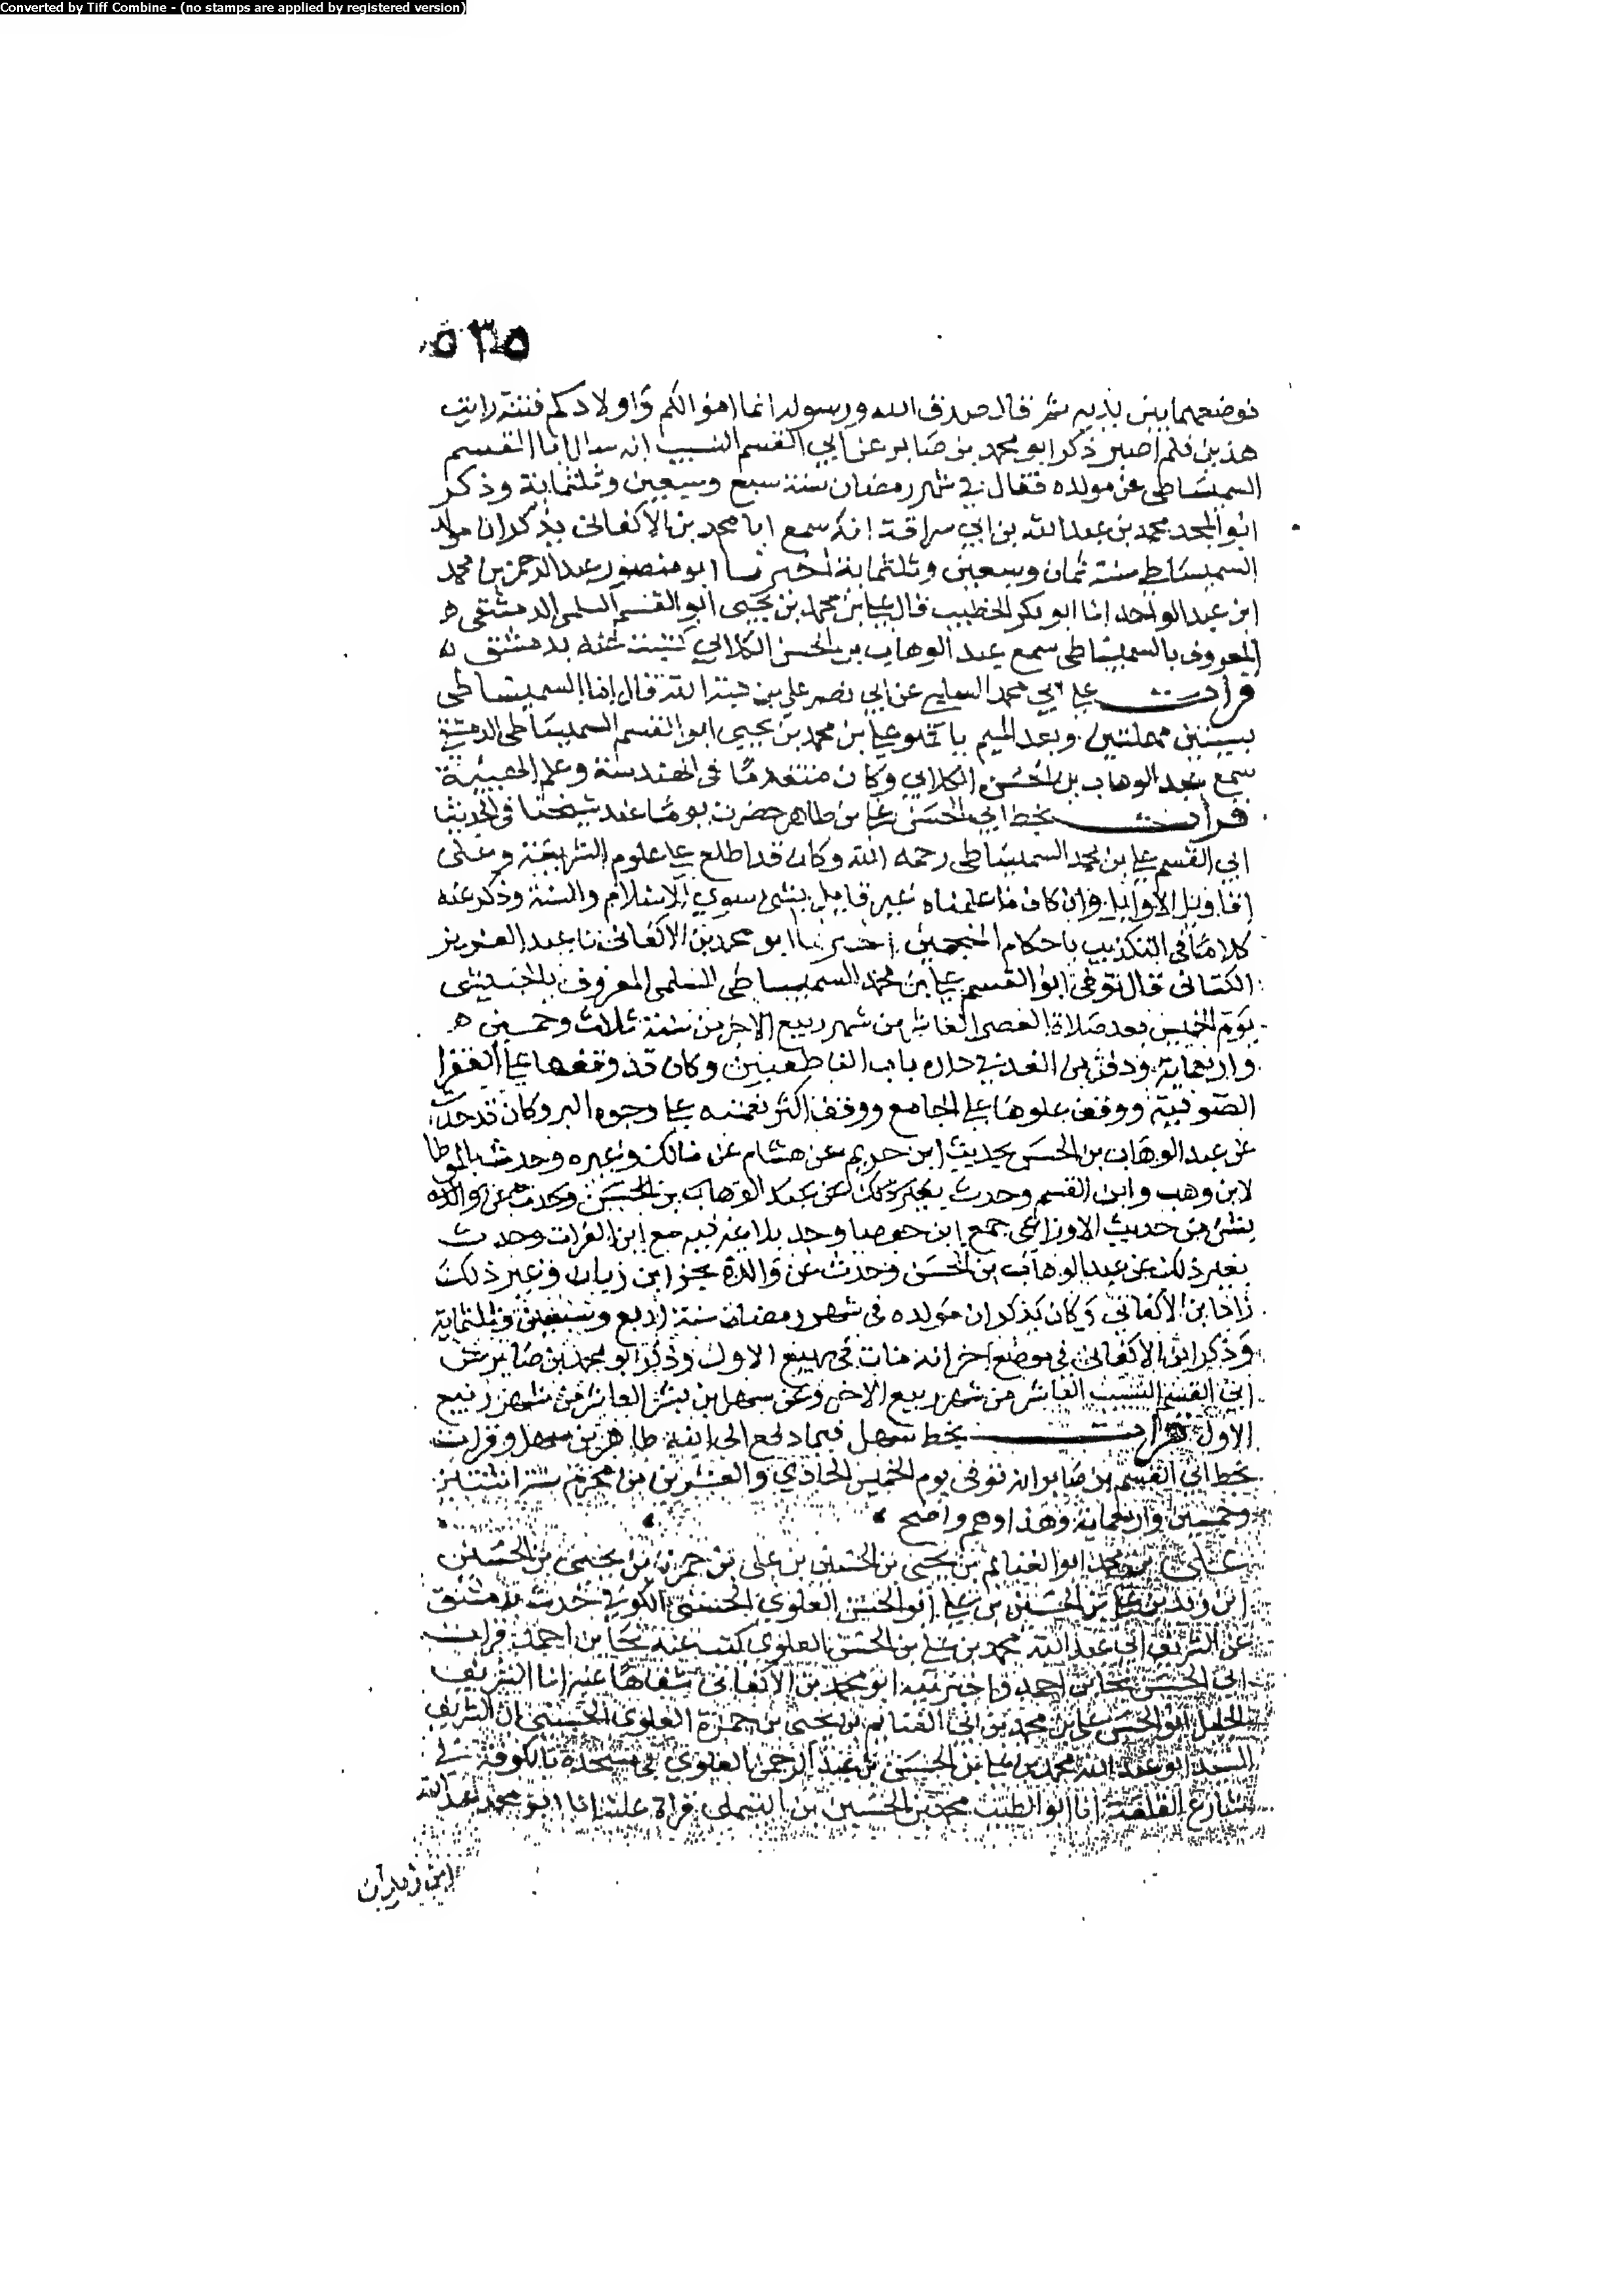 Converted by Tiff Combine - (no stamps are applied by registered version)
٥٣٥
فوضعهما بين يديه ثم قال صدق الله ورسوله انما اموالكم واولادكم فتنة رايت
هذين فلم اصبر ذكر ابو محمد بن صابر عن ابي القسم النسيب انه سال ابا القسم
السميساطي عن مولده فقال في شهر رمضان سنة سبع وسبعين وثلثماية وذكر
ابو المجد محمد بن عبد الله بن ابي سراقة انه سمع ابا محمد بن الاكفاني يذكر ان مولد
السميساطي سنة ثمان وسبعين وثلثماية اخبرنا ابو منصور عبد الرحمن بن محمد
ابن عبد الواحد انا ابو بكر الخطيب قال علي بن محمد بن يحيى ابو القسم السلمي الدمشقي
المعروف بالسميساطي سمع عبد الوهاب بن الحسن الكلابي كتبت عنه بدمشق
قرات علي ابي محمد السلمي عن ابي نصر علي بن هبة الله قال اما السميساطي
بسينين مهملتين وبعد الميم يا فهو علي بن محمد بن يحيى ابو القسم السميساطي الدمشقي
سمع عبد الوهاب بن الحسن الكلابي وكان متقدما في الهندسة وعلم الهيئة
قرات بخط ابي الحسن علي بن طاهر حضرت يوما عند شيخنا في الحديث
ابي القسم علي بن محمد السميساطي رحمه الله وكان قد اطلع علي علوم الشريعة وعلى
اقاويل الاوايل وان كان ما علمناه غير قايل بشي سوي الاسلام والسنة وذكر عنه
كلاما في التكذيب باحكام المنجمين اخبرنا ابو محمد بن الاكفاني نا عبد العزيز
الكتاني قال توفي ابو القسم علي بن محمد السميساطي السلمي المعروف
يوم الخميس بعد صلاة العصر العاشر من شهر ربيع الاخر من سنة ثلاث وخمسين
واربعماية ودفن من الغد في داره باب الناطفيين وكان قد وقفها علي الفقرا
الصوفية ووقف علوها علي الجامع ووقف اكثر نعمته علي وجوه البر وكان قد حدث
عن عبد الوهاب بن الحسن بحديث ابن خريم عن هشام عن مالك وغيره وحدث بالموطا
لابن وهب وابن القسم وحدث بغير ذلك عن عبد الوهاب بن الحسن وحدث عن والده
بشي من حديث الاوزاعي جمع ابن جوصا وحد
بغير ذلك عن عبد الوهاب بن الحسن وحدث عن والده بجز ابن زبان وغير ذلك
زاد ابن الاكفاني وكان يذكر ان مولده في شهر رمضان سنة اربع وسبعين وثلثماية
وذكر ابن الاكفاني في موضع اخر انه مات في ربيع الاول وذكر ابو محمد بن صابر عن
ابي القسم النسيب العاشر من شهر ربيع الاخر وعن سهل بن بشر العاشر من شهر ربيع
الاول قرات بخط سهل فيما دفع الي ابنه طاهر بن سهل وقرات
بخط ابي القسم بن صابر انه توفي يوم الخميس الحادي والعشرين من محرم سنة اثنتين
وخمسين واربعماية وهذا وهم واضح
علي بن محمد ابو الغنايم بن يحيى بن الحسين بن علي بن حمزة بن يحيى بن الحسين
ابن زيد بن علي بن الحسين بن علي ابو الحسن العلوي الحسيني الكوفي حدث بدمشق
عن الشريف ابي عبد الله محمد بن علي بن الحسن العلوي كتب عنه نجا بن احمد قرات
ابي الحسن نجا بن احمد واخبرنيه ابو محمد بن الاكفاني شفاها عنه انا الشريف
الجليل ابو الحسن علي بن محمد بن ابي الغنايم بن يحيى بن حمزة العلوي الحسيني ان الشريف
السيد ابو عبد الله محمد بن علي بن الحسن بن عبد الرحمن العلوي في مسجده بالكوفة في
شارع القلعة انا ابو الطيب محمد بن الحسين بن التيملي قراة عليه انا ابو محمد عبد الله
ابن زيدان